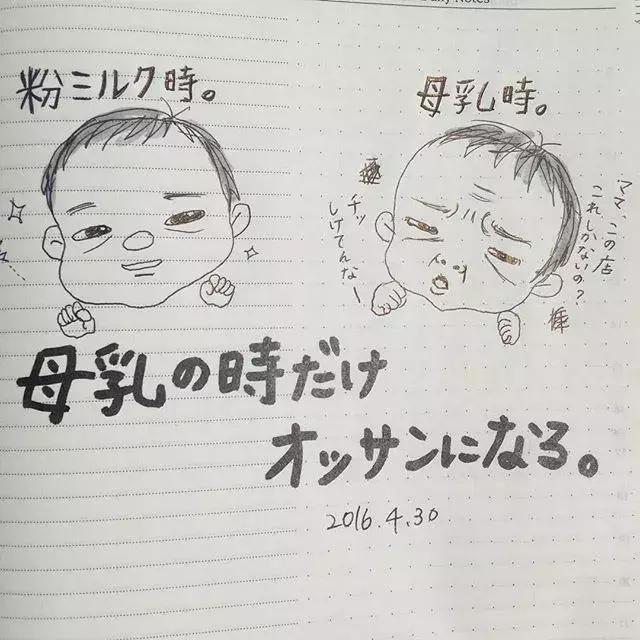 粉ミルク時。
母乳時。
ママ、この店
これしかないの?
チッ
しけてんなー
母乳の時だけ
オッサンになる。
2016.4.30